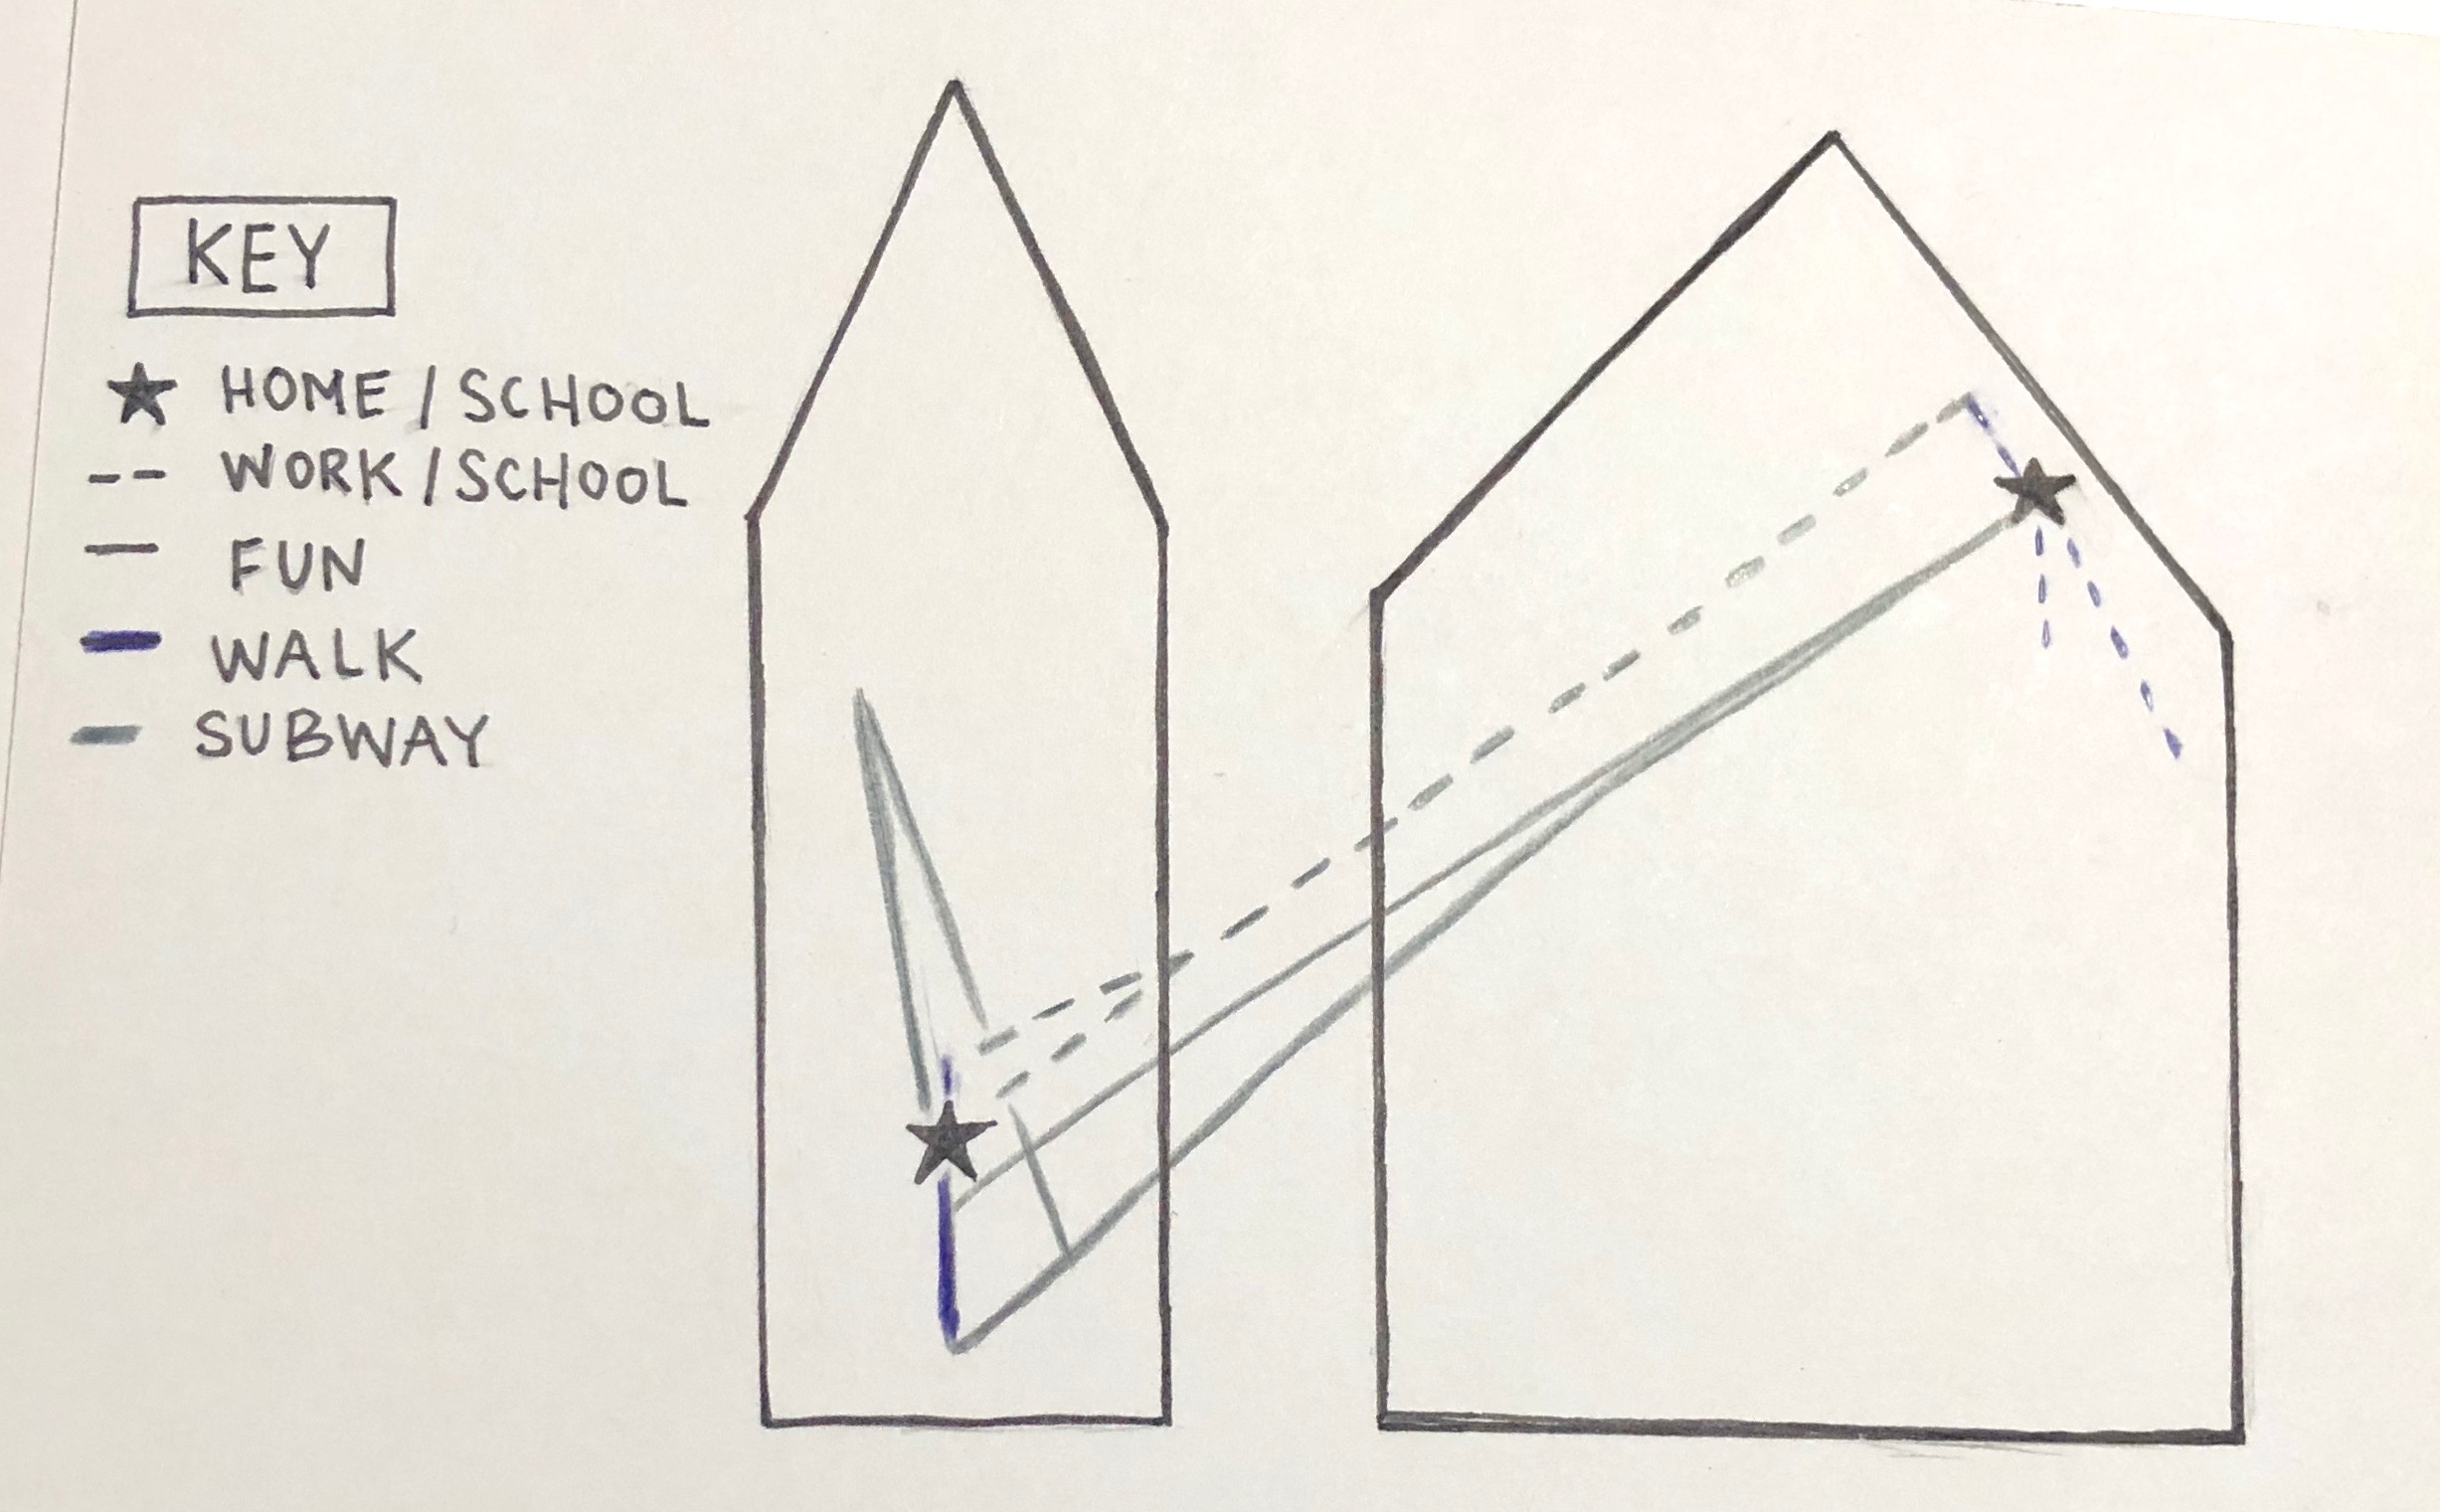 KEY
HOME / SCHOOL
WORK / SCHOOL
FUN
WALK
SUBWAY